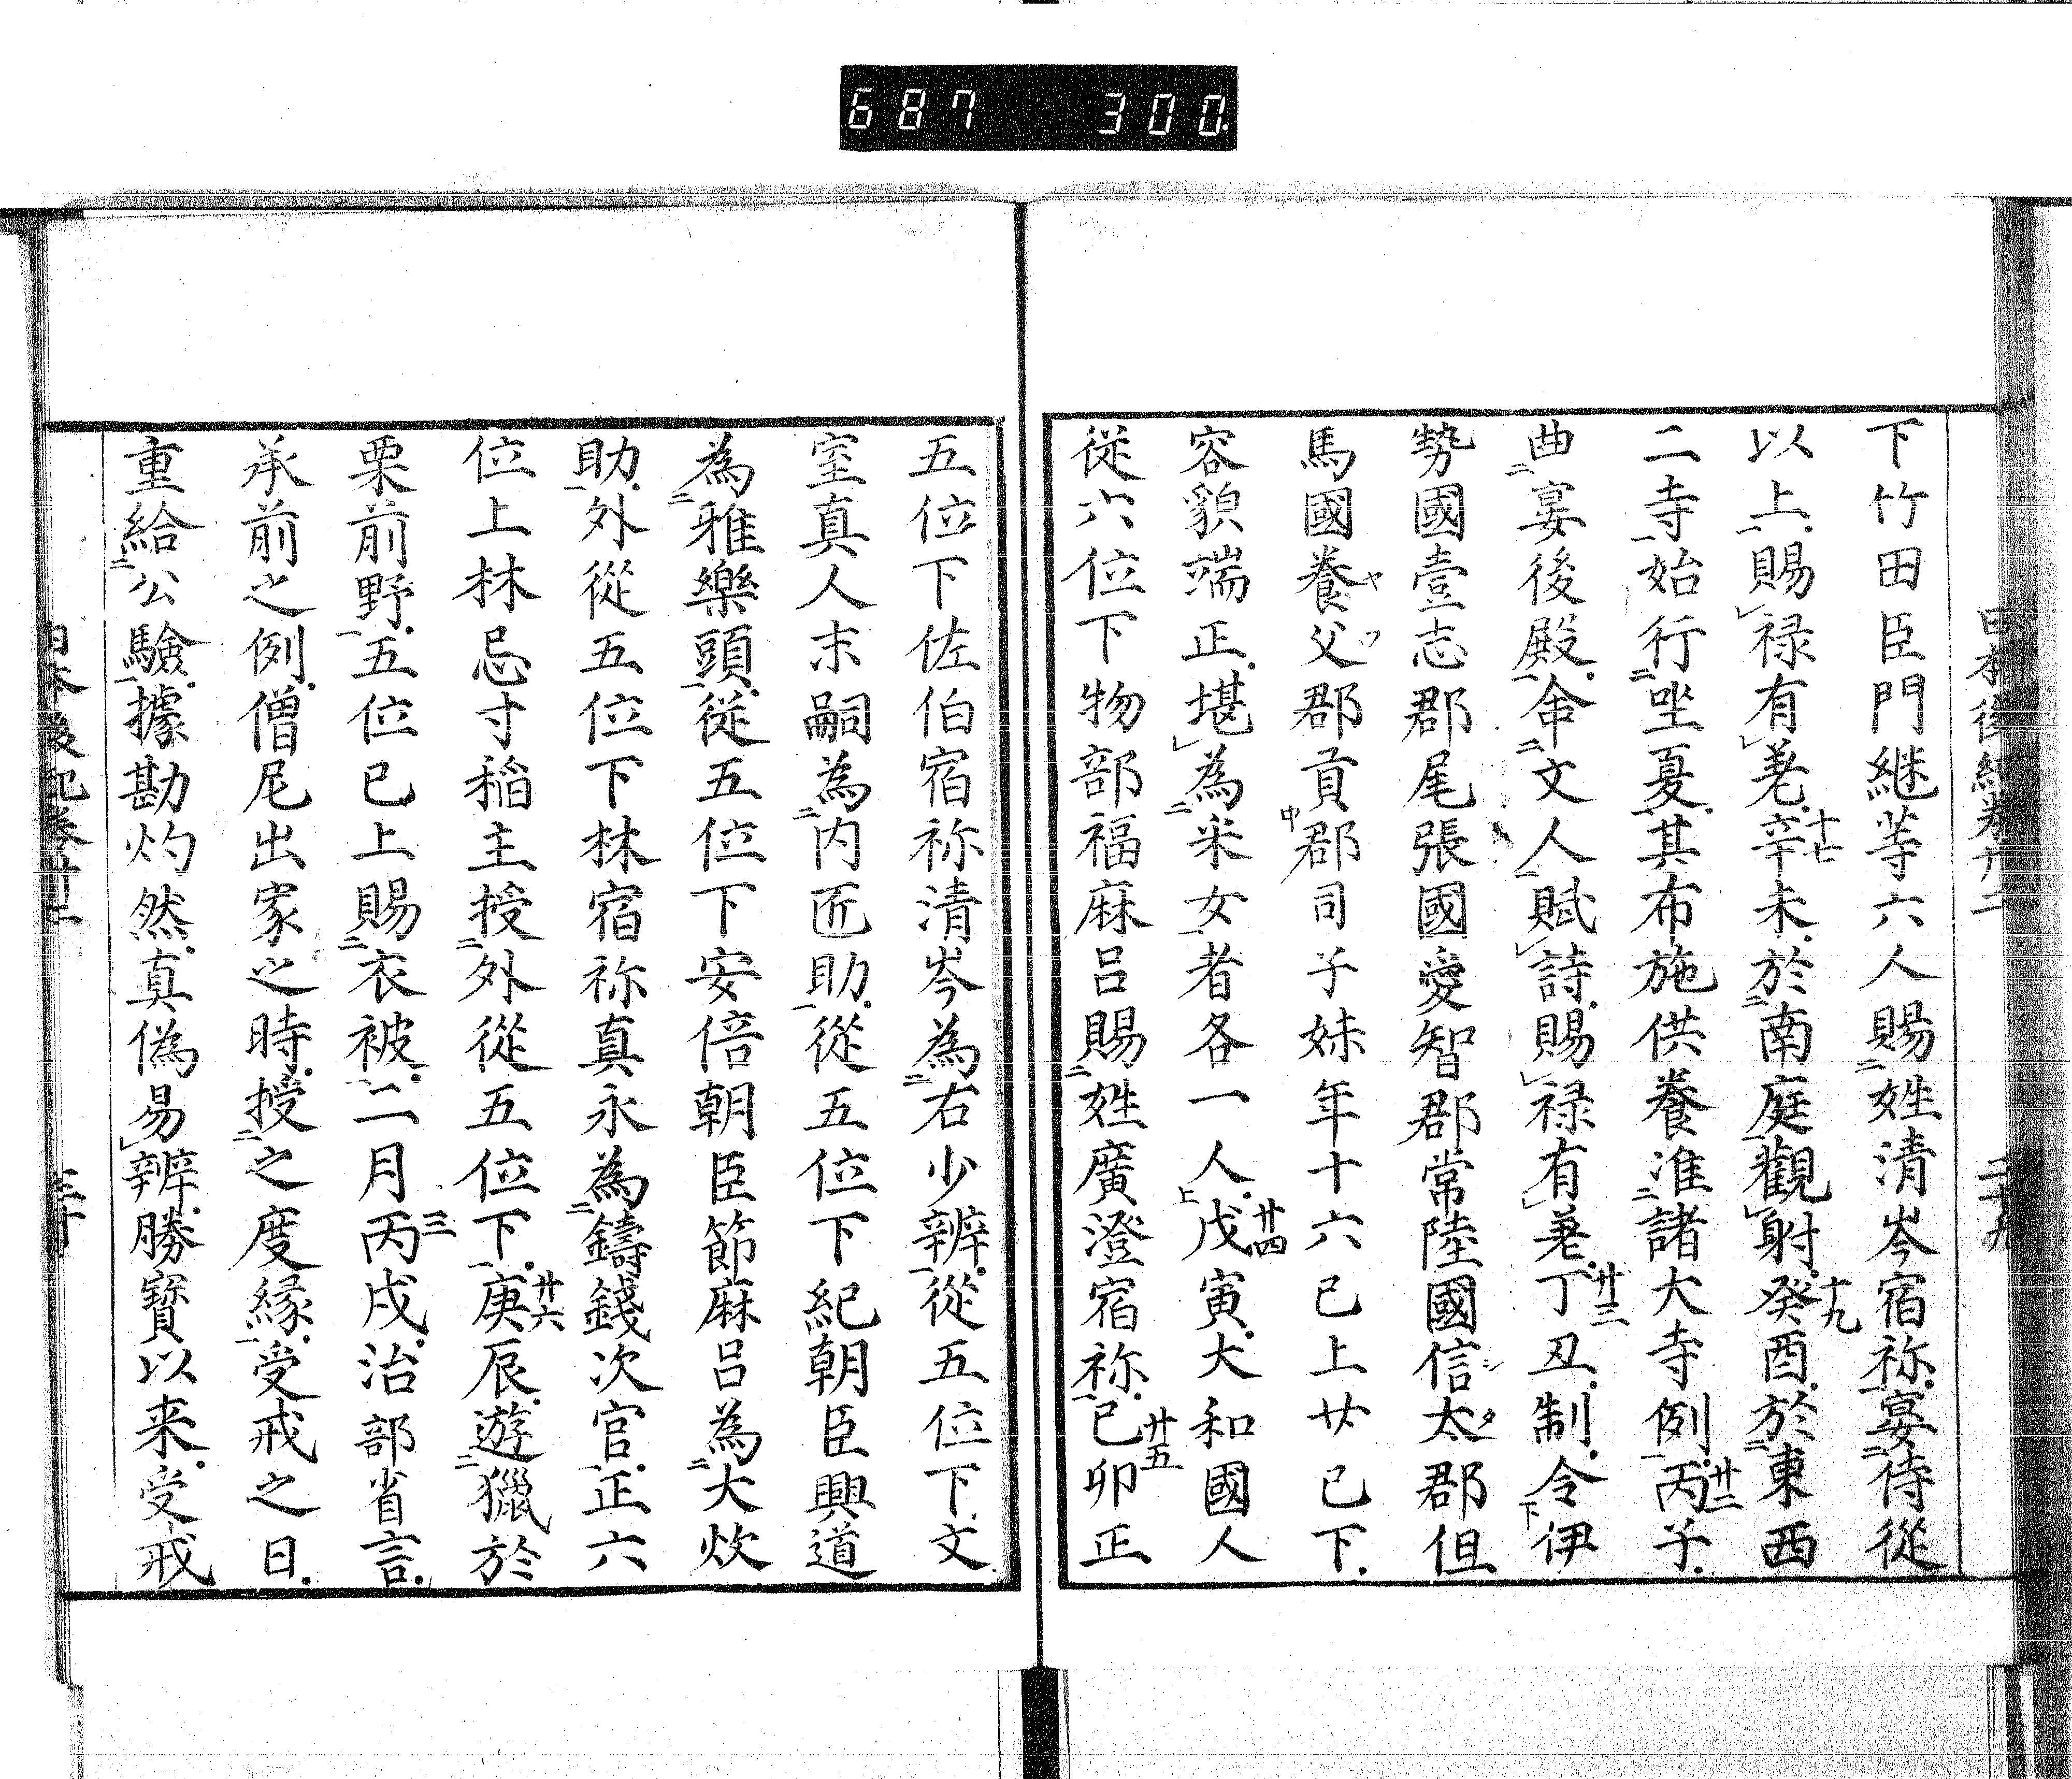 687 300.
日本後紀卷廿二 二十九
下竹田臣門継等六人賜姓清岑宿祢宴侍從
以上賜禄有差辛未於南庭觀射癸酉於東西
二寺始行坐夏其布施供養准諸大寺例丙子
曲宴後殿命文人賦詩賜禄有差丁丑制令伊
勢國壹志郡尾張國愛智郡常陸國信太郡但
馬國養父郡貢郡司子妹年十六已上廿已下
容貌端正堪為釆女者各一人戊寅大和國人
從六位下物部福麻呂賜姓廣澄宿祢己卯正
五位下佐伯宿祢清岑為右少辨從五位下文
室真人末嗣為内匠助從五位下紀朝臣興道
為雅樂頭從五位下安倍朝臣節麻呂為大炊
助外從五位下林宿祢真永為鑄錢次官正六
位上林忌寸稲主授外從五位下庚辰遊獵於
栗前野五位已上賜衣被二月丙戌治部省言
承前之例僧尼出家之時授之度縁受戒之日
重給公驗據勘灼然真偽易辨勝寶以来受戒
日本後紀卷廿二 三十